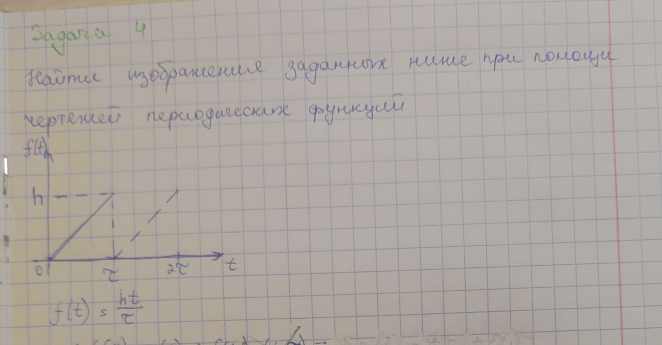 Задача 4
Найти изображение заданных ниже при помощи
чертежей периодических функций
f(t)
h
0 τ 2τ t
f(t) = ht/τ